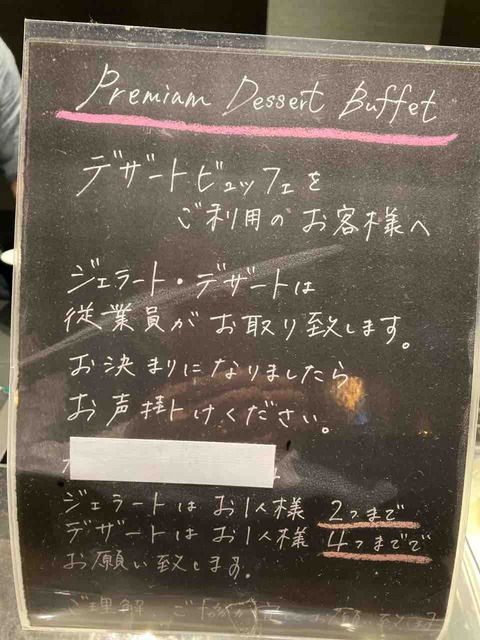 Premiam Dessert Buffet
デザートビュッフェを
ご利用のお客様へ
ジェラート・デザートは
従業員がお取り致します。
お決まりになりましたら
お声掛けください。
ジェラートはお1人様 2つまで
デザートはお1人様 4つまでで
お願い致します。
ご理解 ご協力